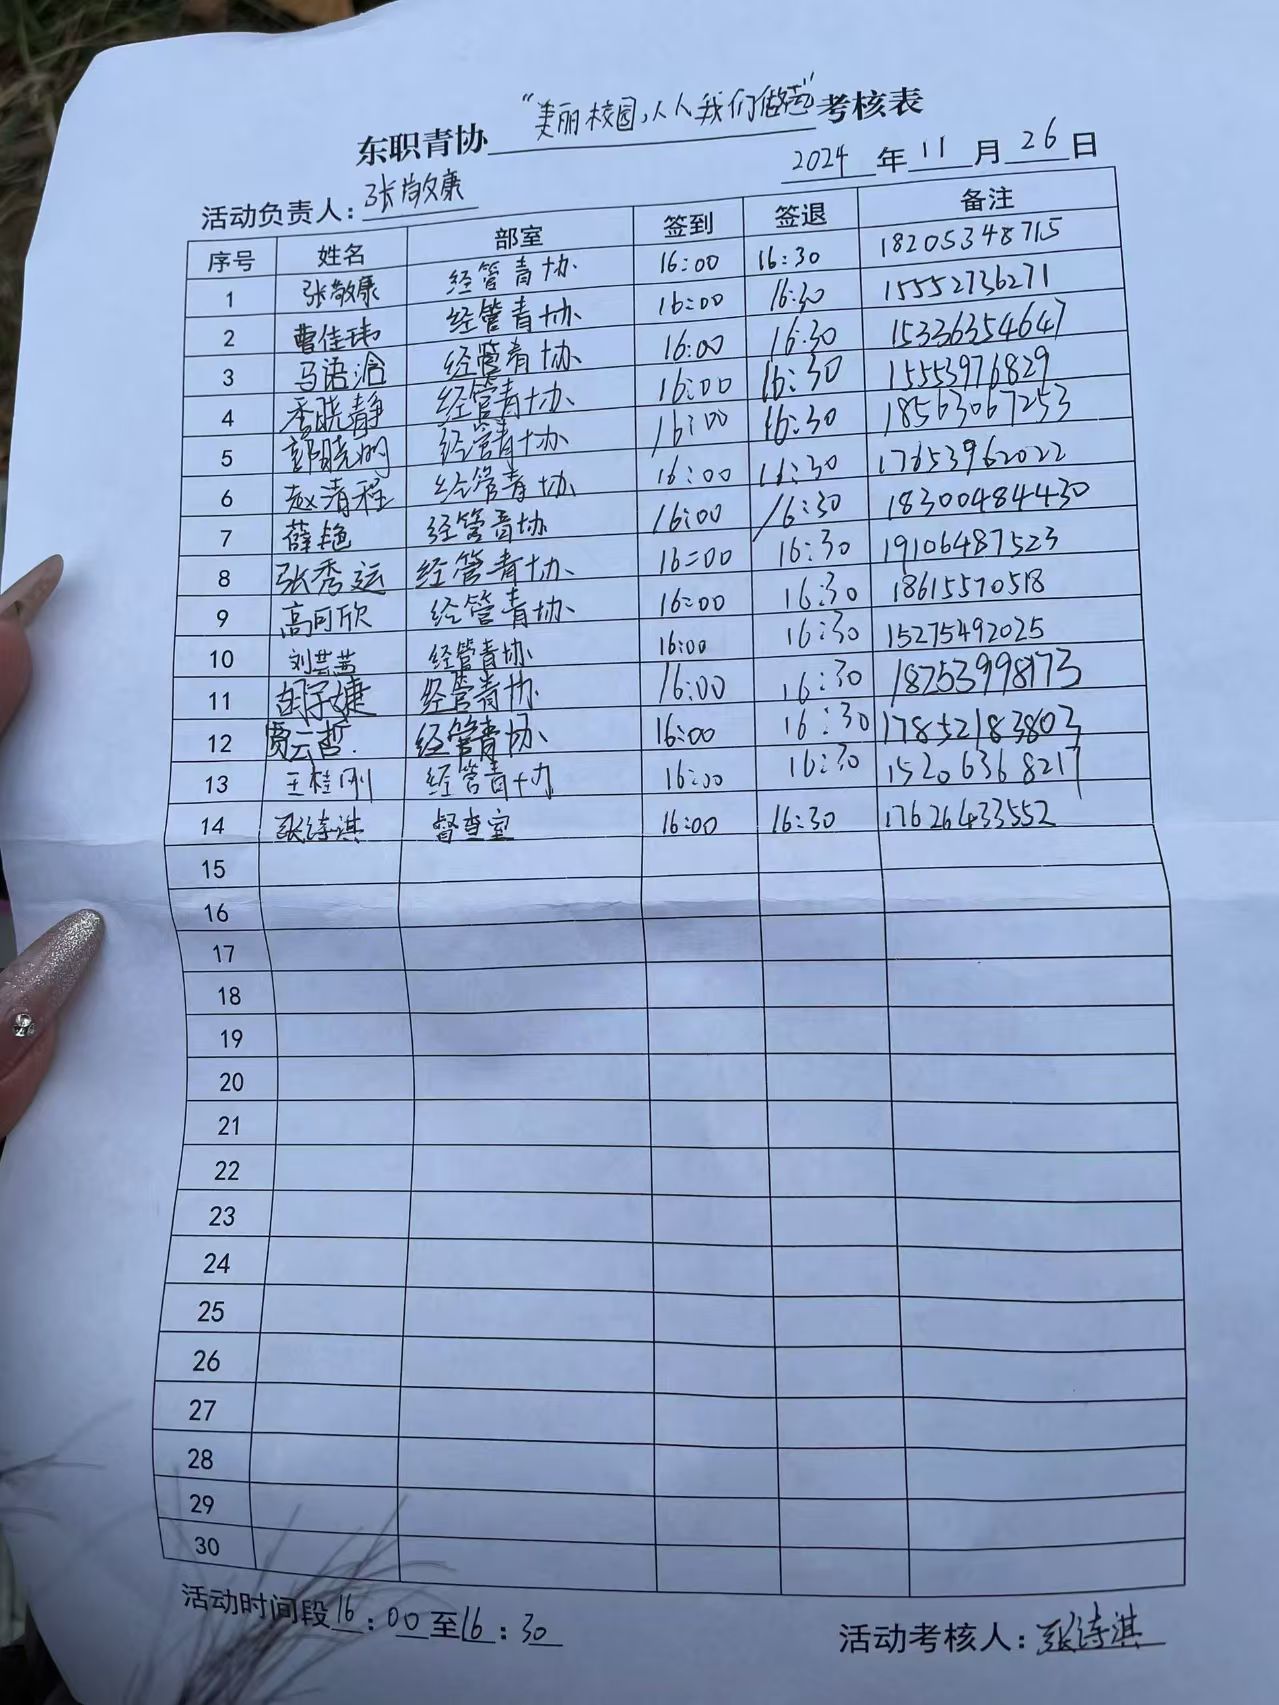 东职青协 "美丽校园,人人我们做起" 考核表
2024 年 11 月 26 日
活动负责人: 张敬康
序号 姓名 部室 签到 签退 备注
1 张敬康 经管青协 16:00 16:30 18205348715
2 曹佳玮 经管青协 16:00 16:30 15552736271
3 马语浛 经管青协 16:00 16:30 15336354647
4 季晓静 经管青协 16:00 16:30 15553976829
5 郭晓明 经管青协 16:00 16:30 18563067253
6 赵清程 经管青协 16:00 16:30 17653962022
7 薛艳 经管青协 16:00 16:30 18300484430
8 张秀运 经管青协 16:00 16:30 19106487523
9 高可欣 经管青协 16:00 16:30 18615570518
10 刘芸茜 经管青协 16:00 16:30 15275492025
11 胡子婕 经管青协 16:00 16:30 18753998173
12 贾云哲 经管青协 16:00 16:30 17852183803
13 王桂刚 经管青协 16:00 16:30 15206368217
14 张诗淇 督查室 16:00 16:30 17626433552
15
16
17
18
19
20
21
22
23
24
25
26
27
28
29
30
活动时间段 16:00 至 16:30
活动考核人: 张诗淇